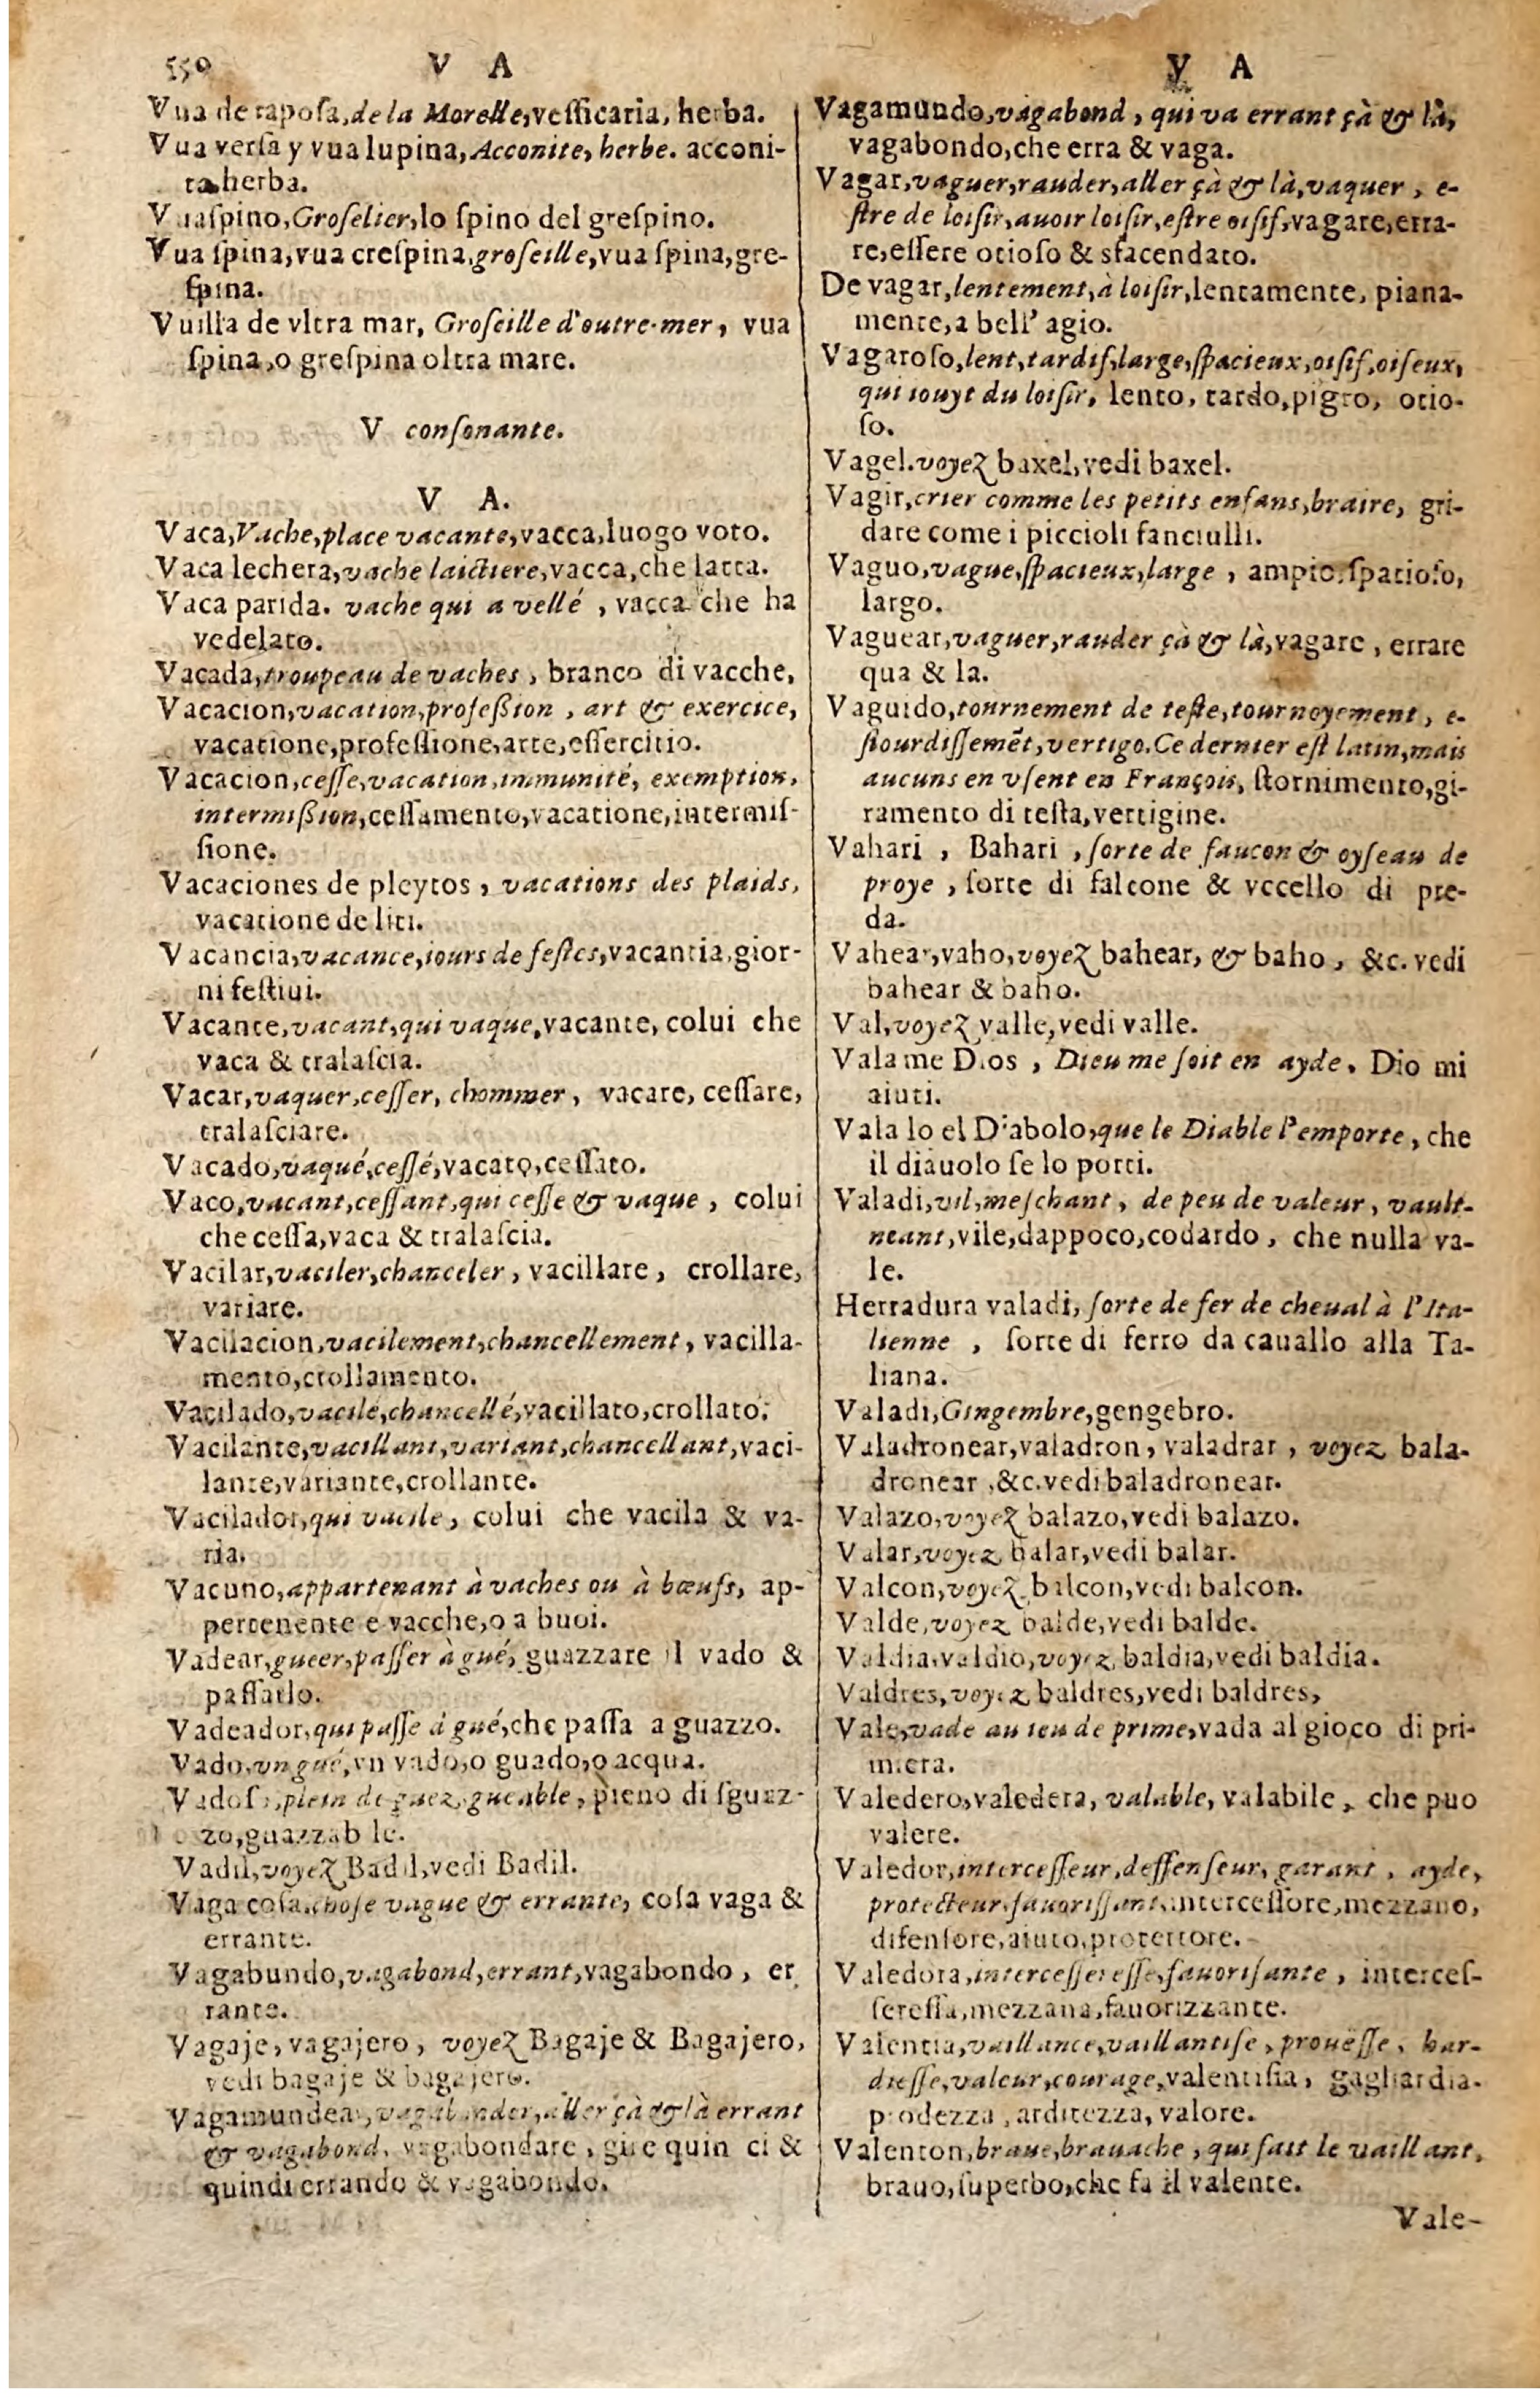 550 V A
Vua de raposa, de la Morelle, vessicaria, herba.
Vua versa y vua lupina, Acconite, herbe. acconi-
ta herba.
Vuaspino, Groselier, lo spino del grespino.
Vua spina, vua crespina, groseille, vua spina, gre-
spina.
Vuilla de vltra mar, Groseille d'outre-mer, vua
spina, o grespina oltra mare.
V consonante.
V A.
Vaca, Vache, place vacante, vacca, luogo voto.
Vaca lechera, vache laictiere, vacca, che latta.
Vaca parida. vache qui a vellé, vacca che ha
vedelato.
Vacada, troupeau de vaches, branco di vacche,
Vacacion, vacation, profeßion, art & exercice,
vacatione, professione, arte, essercitio.
Vacacion, cesse, vacation, immunité, exemption,
intermißion, cessamento, vacatione, intermis-
sione.
Vacaciones de pleytos, vacations des plaids,
vacatione de liti.
Vacancia, vacance, iours de festes, vacantia, gior-
ni festiui.
Vacante, vacant, qui vaque, vacante, colui che
vaca & tralascia.
Vacar, vaquer, cesser, chommer, vacare, cessare,
tralasciare.
Vacado, vaqué, cessé, vacato, cessato.
Vaco, vacant, cessant, qui cesse & vaque, colui
che cessa, vaca & tralascia.
Vacilar, vaciler, chanceler, vacillare, crollare,
variare.
Vacilacion, vacilement, chancellement, vacilla-
mento, crollamento.
Vacilado, vacilé, chancellé, vacillato, crollato.
Vacilante, vacillant, variant, chancellant, vaci-
lante, variante, crollante.
Vacilador, qui vacile, colui che vacila & va-
ria.
Vacuno, appartenant à vaches ou à bœufs, ap-
pertenente e vacche, o a buoi.
Vadear, gueer, passer à gué, guazzare il vado &
passarlo.
Vadeador, qui passe à gué, che passa a guazzo.
Vado, vn gué, vn vado, o guado, o acqua.
Vadoso, plein de guez, gueable, pieno di sguaz-
zo, guazzabile.
Vadil, voyez Badil, vedi Badil.
Vaga cosa, chose vague & errante, cosa vaga &
errante.
Vagabundo, vagabond, errant, vagabondo, er
rante.
Vagaje, vagajero, voyez Bagaje & Bagajero,
vedi bagaje & bagajero.
Vagamundear, vagabonder, aller çà & là errant
& vagabond, vagabondare, gire quin ci &
quindi errando & vagabondo.
V A
Vagamundo, vagabond, qui va errant çà & là,
vagabondo, che erra & vaga.
Vagar, vaguer, rauder, aller çà & là, vaquer, e-
stre de loisir, auoir loisir, estre oisif, vagare, erra-
re, essere otioso & sfacendato.
De vagar, lentement, à loisir, lentamente, piana-
mente, a bell' agio.
Vagaroso, lent, tardif, large, spacieux, oisif, oiseux,
qui iouyt du loisir, lento, tardo, pigro, otio-
so.
Vagel. voyez baxel, vedi baxel.
Vagir, crier comme les petits enfans, braire, gri-
dare come i piccioli fanciulli.
Vaguo, vague, spacieux, large, ampio, spatioso,
largo.
Vaguear, vaguer, rauder çà & là, vagare, errare
qua & la.
Vaguido, tournement de teste, tournoyement, e-
stourdissemẽt, vertigo. Ce dernier est latin, mais
aucuns en vsent en François, stornimento, gi-
ramento di testa, vertigine.
Vahari, Bahari, sorte de faucon & oyseau de
proye, sorte di falcone & vccello di pre-
da.
Vahear, vaho, voyez bahear, & baho, &c. vedi
bahear & baho.
Val, voyez valle, vedi valle.
Vala me Dios, Dieu me soit en ayde, Dio mi
aiuti.
Vala lo el Diabolo, que le Diable l'emporte, che
il diauolo se lo porti.
Valadi, vil, meschant, de peu de valeur, vault-
neant, vile, dappoco, codardo, che nulla va-
le.
Herradura valadi, sorte de fer de cheual à l'Ita-
lienne, sorte di ferro da cauallo alla Ta-
liana.
Valadi, Gingembre, gengebro.
Valadronear, valadron, valadrar, voyez bala-
dronear, &c. vedi baladronear.
Valazo, voyez balazo, vedi balazo.
Valar, voyez balar, vedi balar.
Valcon, voyez balcon, vedi balcon.
Valde, voyez balde, vedi balde.
Valdia, valdio, voyez baldia, vedi baldia.
Valdres, voyez baldres, vedi baldres,
Vale, vade au ieu de prime, vada al gioco di pri-
miera.
Valedero, valedera, valable, valabile, che puo
valere.
Valedor, intercesseur, deffenseur, garant, ayde,
protecteur, fauorissant, intercessore, mezzano,
difensore, aiuto, protettore.
Valedora, intercesseresse, fauorisante, interces-
seressa, mezzana, fauorizzante.
Valentia, vaillance, vaillantise, prouësse, har-
diesse, valeur, courage, valentisia, gagliardia.
prodezza, arditezza, valore.
Valenton, braue, brauache, qui fait le vaillant,
brauo, superbo, che fa il valente.
Vale-